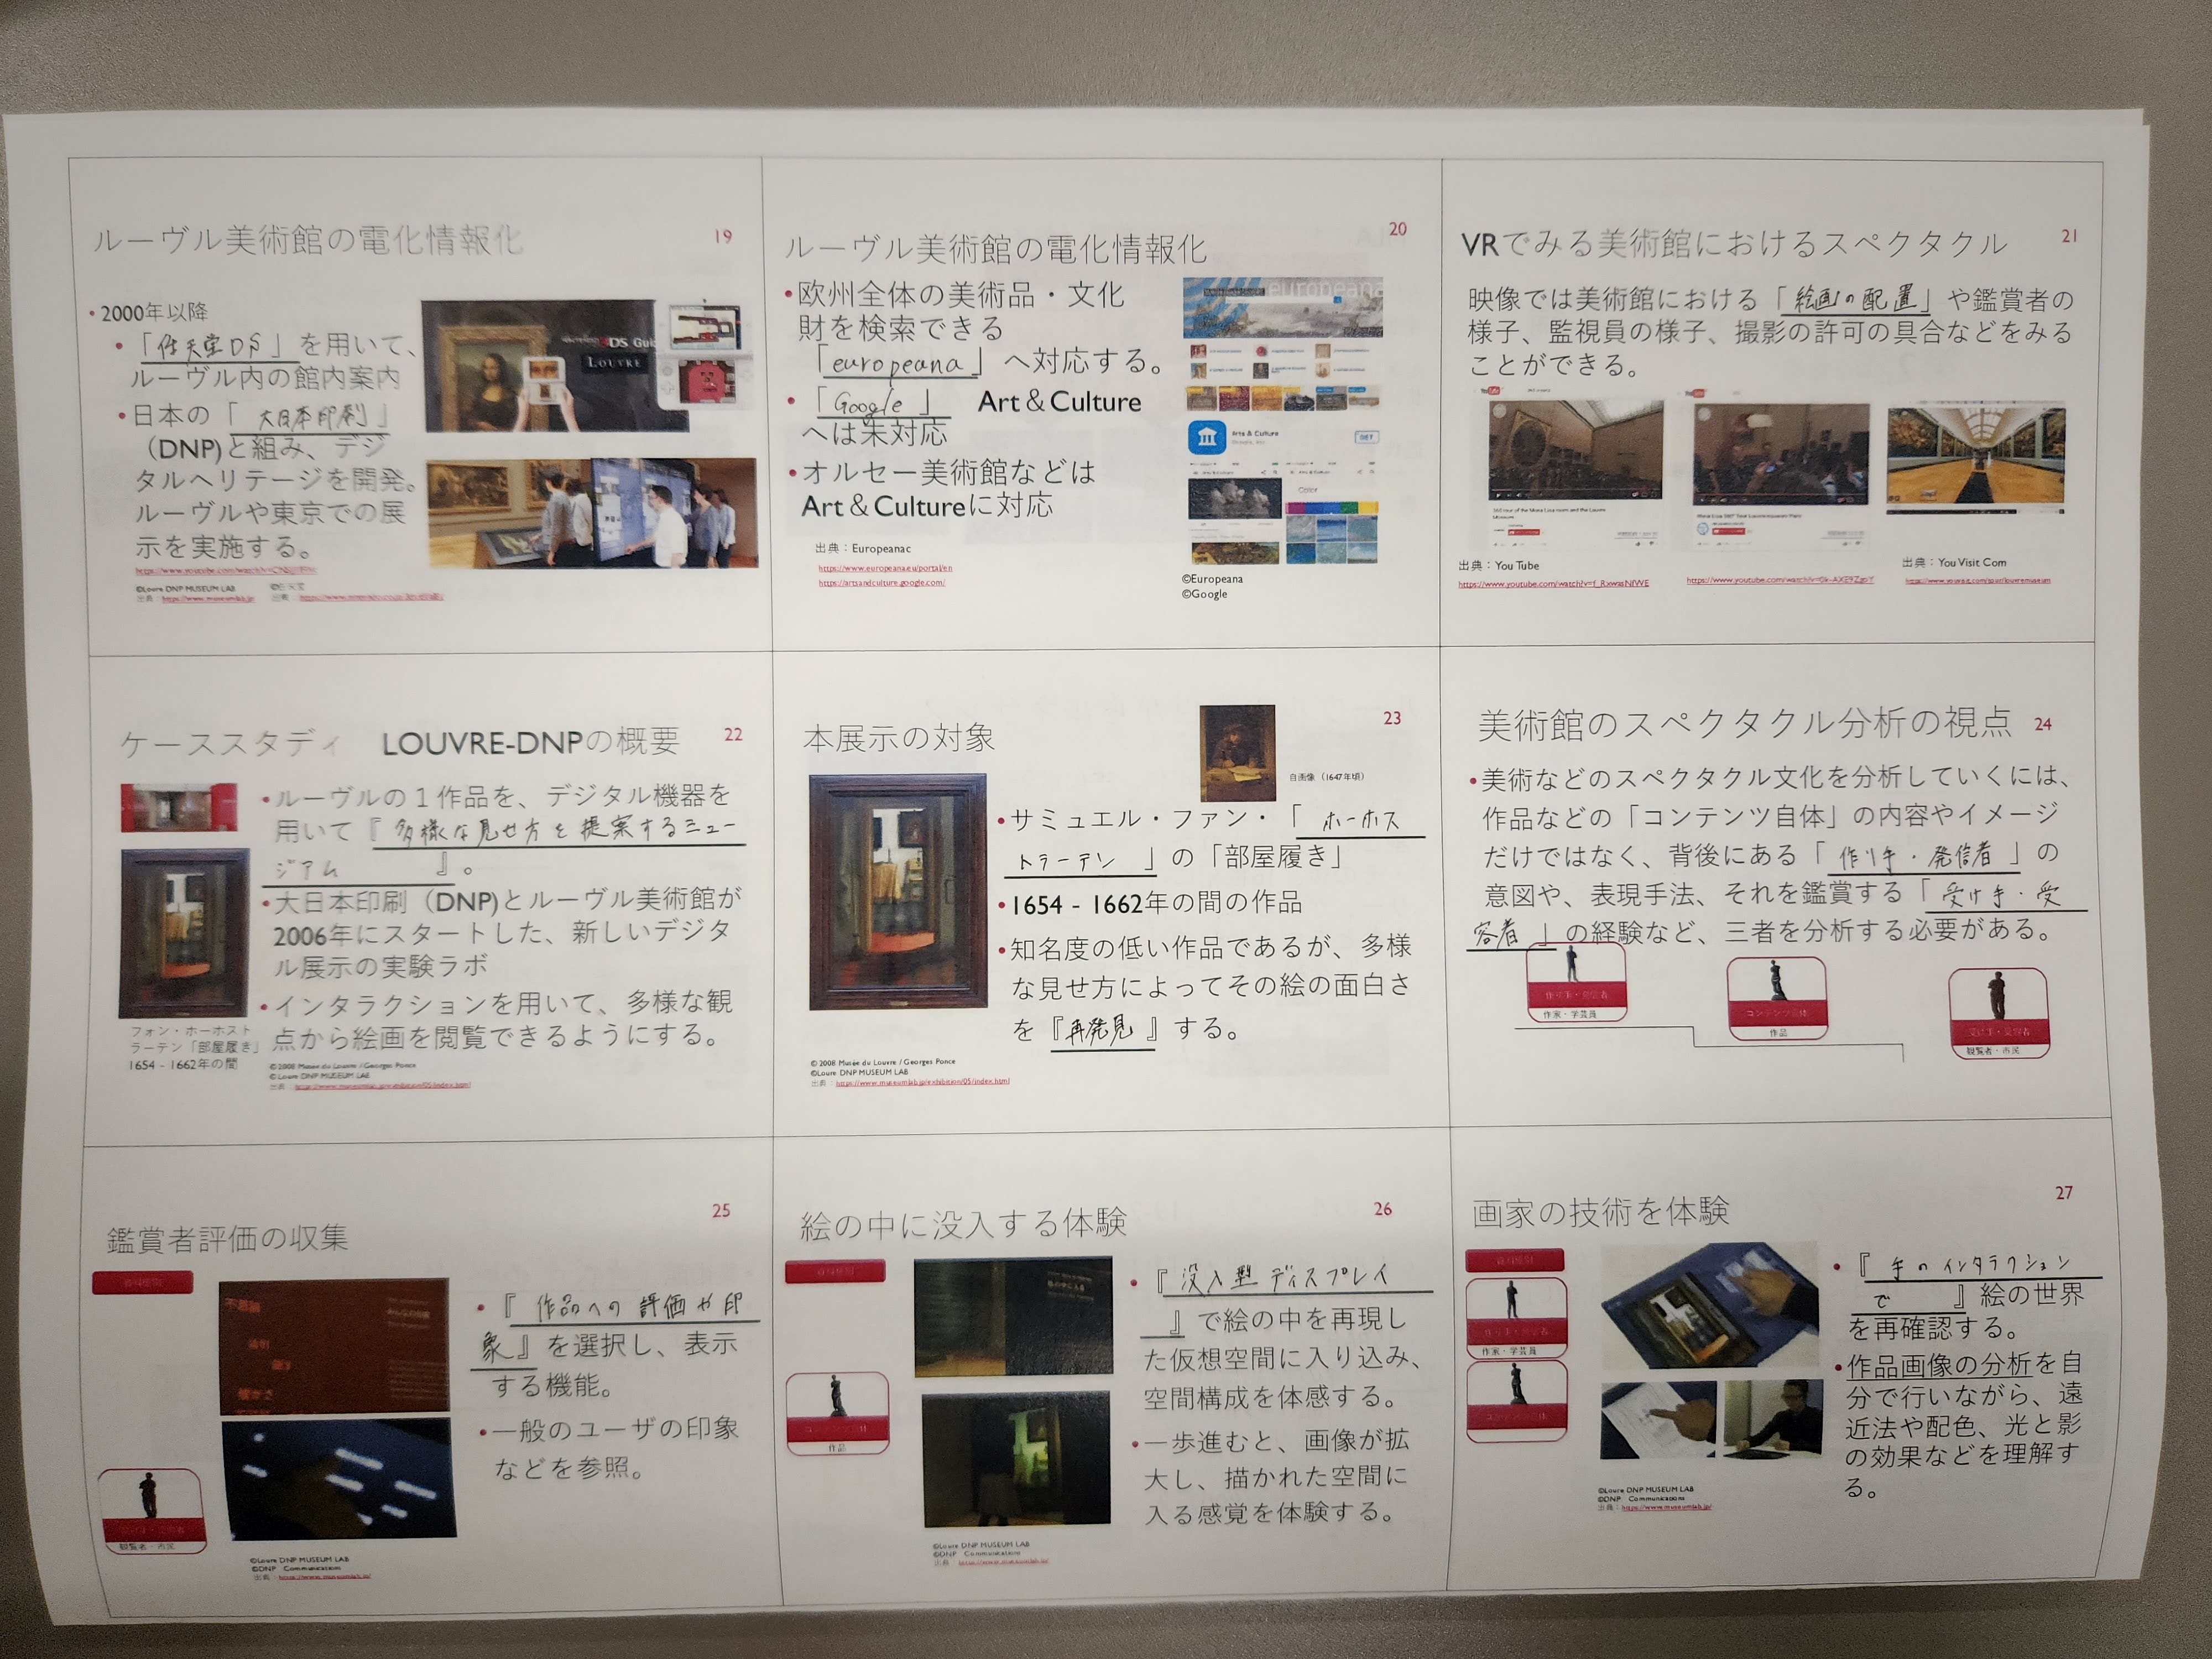 ルーヴル美術館の電化情報化
19
•2000年以降
•「任天堂DS」を用いて、
ルーヴル内の館内案内
•日本の「大日本印刷」
（DNP)と組み、デジ
タルヘリテージを開発。
ルーヴルや東京での展
示を実施する。
©Loure DNP MUSEUM LAB
©任天堂
LOUVRE
ルーヴル美術館の電化情報化
20
•欧州全体の美術品・文化
財を検索できる
「europeana」へ対応する。
•「Google」 Art＆Culture
へは未対応
•オルセー美術館などは
Art＆Cultureに対応
出典：Europeanac
https://www.europeana.eu/portal/en
https://artsandculture.google.com/
europeana
Arts & Culture
Color
©Europeana
©Google
VRでみる美術館におけるスペクタクル
21
映像では美術館における「絵画の配置」や鑑賞者の
様子、監視員の様子、撮影の許可の具合などをみる
ことができる。
出典：You Tube
出典：You Visit Com
ケーススタディ　LOUVRE-DNPの概要
22
•ルーヴルの１作品を、デジタル機器を
用いて『多様な見せ方を提案するミュー
ジアム』。
•大日本印刷（DNP)とルーヴル美術館が
2006年にスタートした、新しいデジタ
ル展示の実験ラボ
•インタラクションを用いて、多様な観
点から絵画を閲覧できるようにする。
フォン・ホーホスト
ラーテン「部屋履き」
1654 - 1662年の間
© 2008 Musée du Louvre / Georges Ponce
©Loure DNP MUSEUM LAB
本展示の対象
23
自画像（1647年頃）
•サミュエル・ファン・「ホーホス
トラーテン」の「部屋履き」
•1654 - 1662年の間の作品
•知名度の低い作品であるが、多様
な見せ方によってその絵の面白さ
を『再発見』する。
© 2008 Musée du Louvre / Georges Ponce
©Loure DNP MUSEUM LAB
出典：https://www.museumlab.jp/exhibition/05/index.html
美術館のスペクタクル分析の視点
24
•美術などのスペクタクル文化を分析していくには、
作品などの「コンテンツ自体」の内容やイメージ
だけではなく、背後にある「作り手・発信者」の
意図や、表現手法、それを鑑賞する「受け手・受
容者」の経験など、三者を分析する必要がある。
作り手・発信者
作家・学芸員
コンテンツ自体
作品
受け手・受容者
観覧者・市民
鑑賞者評価の収集
25
•『作品への評価や印
象』を選択し、表示
する機能。
•一般のユーザの印象
などを参照。
観覧者・市民
©Loure DNP MUSEUM LAB
©DNP Communications
絵の中に没入する体験
26
•『没入型ディスプレイ
』で絵の中を再現し
た仮想空間に入り込み、
空間構成を体感する。
•一歩進むと、画像が拡
大し、描かれた空間に
入る感覚を体験する。
コンテンツ自体
作品
©Loure DNP MUSEUM LAB
©DNP Communications
画家の技術を体験
27
•『手のインタラクション
で』絵の世界
を再確認する。
•作品画像の分析を自
分で行いながら、遠
近法や配色、光と影
の効果などを理解す
る。
作り手・発信者
作家・学芸員
コンテンツ自体
©Loure DNP MUSEUM LAB
©DNP Communications
出典：https://www.museumlab.jp/